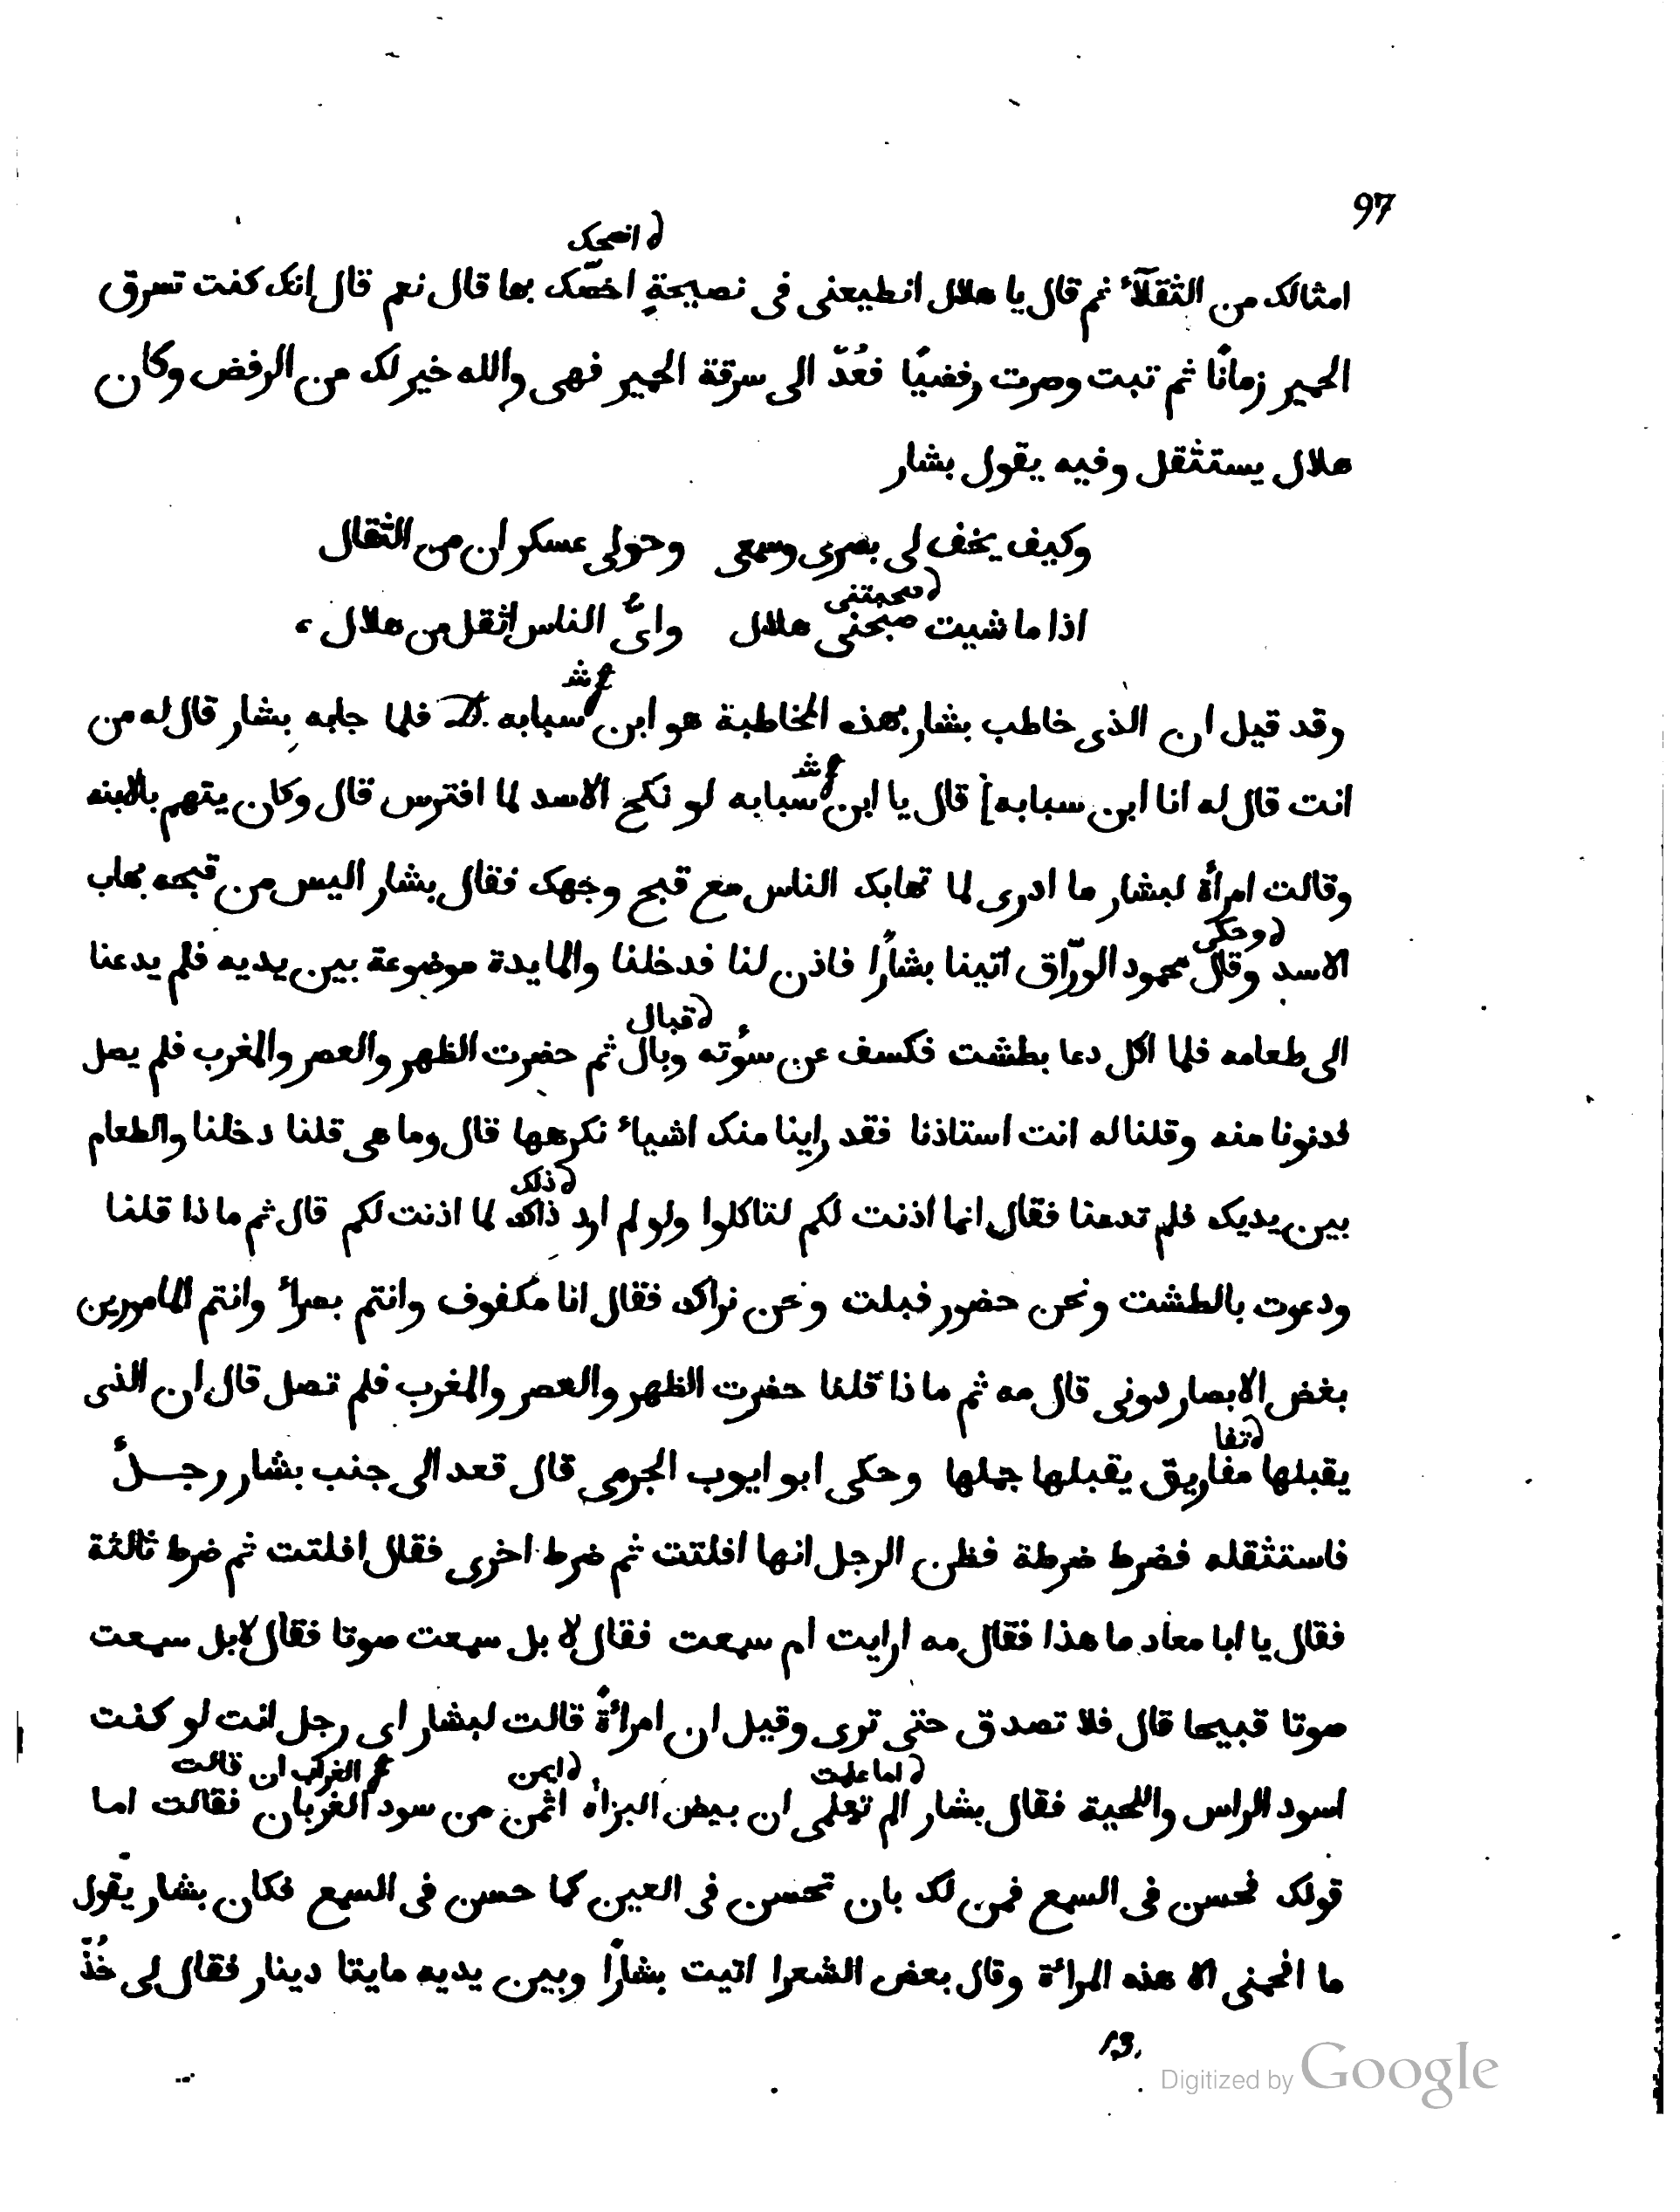 97
انصحک
امثالک من الثقلآء ثم قال يا هلال انطيعنى فى نصيحةٍ اخصّک بها قال نعم قال انک کنت تسرق
الحمير زمانًا ثم تبت وصرت رفضيًا فعُدّ الى سرقة الحمير فهى والله خير لک من الرفض وكان
هلال يستثقل وفيه يقول بشار
وكيف يخف لى بصرى وسمعى وحولى عسكران من الثقال
اذا ما شيت صبحنى هلال واىّ الناس اثقل من هلال
وقد قيل ان الذى خاطب بشار بهذه المخاطبة هو ابن سبابه فلما جابه بشار قال له من
انت قال له انا ابن سبابه] قال يا ابن سبابه لو نكح الاسد لما افترس قال وكان يتهم بالابنه
وقالت امرأة لبشار ما ادرى لما تهابک الناس مع قبح وجهک فقال بشار اليس من قبحه يهاب
وحكى
الاسد وقال محمود الورّاق اتينا بشارًا فاذن لنا فدخلنا والمايدة موضوعة بين يديه فلم يدعنا
فبال
الى طعامه فلما اكل دعا بطشت فكسف عن سؤته وبال ثم حضرت الظهر والعصر والمغرب فلم يصل
فدنونا منه وقلنا له انت استاذنا فقد راينا منک اشياء نكرهها قال وما هى قلنا دخلنا والطعام
ذلک
بين يديک فلم تدعنا فقال انما اذنت لكم لتاكلوا ولو لم ارد ذاک لما اذنت لكم قال ثم ما ذا قلنا
ودعوت بالطشت ونحن حضور فبلت ونحن نراک فقال انا مكفوف وانتم بصراء وانتم المامورين
بغض الابصار دونى قال مه ثم ما ذا قلنا حضرت الظهر والعصر والمغرب فلم تصل قال ان الذى
تفا
يقبلها مفاريق يقبلها جملها وحكى ابو ايوب الجرمى قال قعد الى جنب بشار رجلٌ
فاستثقله فضرط ضرطة فظن الرجل انها افلتت ثم ضرط اخرى فقال افلتت ثم ضرط ثالثة
فقال يا ابا معاد ما هذا فقال مه ارايت ام سمعت فقال لا بل سمعت صوتا فقال لا بل سمعت
صوتا قبيحا قال فلا تصدق حتى ترى وقيل ان امرأةً قالت لبشار اى رجل انت لو كنت
اما علمت ايمن الغراب ان قالت
اسود الراس واللحية فقال بشار الم تعلمى ان بيض البزاه اثمن من سود الغربان فقالت اما
قولک فحسن فى السمع فمن لک بان تحسن فى العين كما حسن فى السمع فكان بشار يقول
ما افحمنى الا هذه المراة وقال بعض الشعرا اتيت بشارًا وبين يديه مايتا دينار فقال لى خُذّ
13.
Digitized by Google